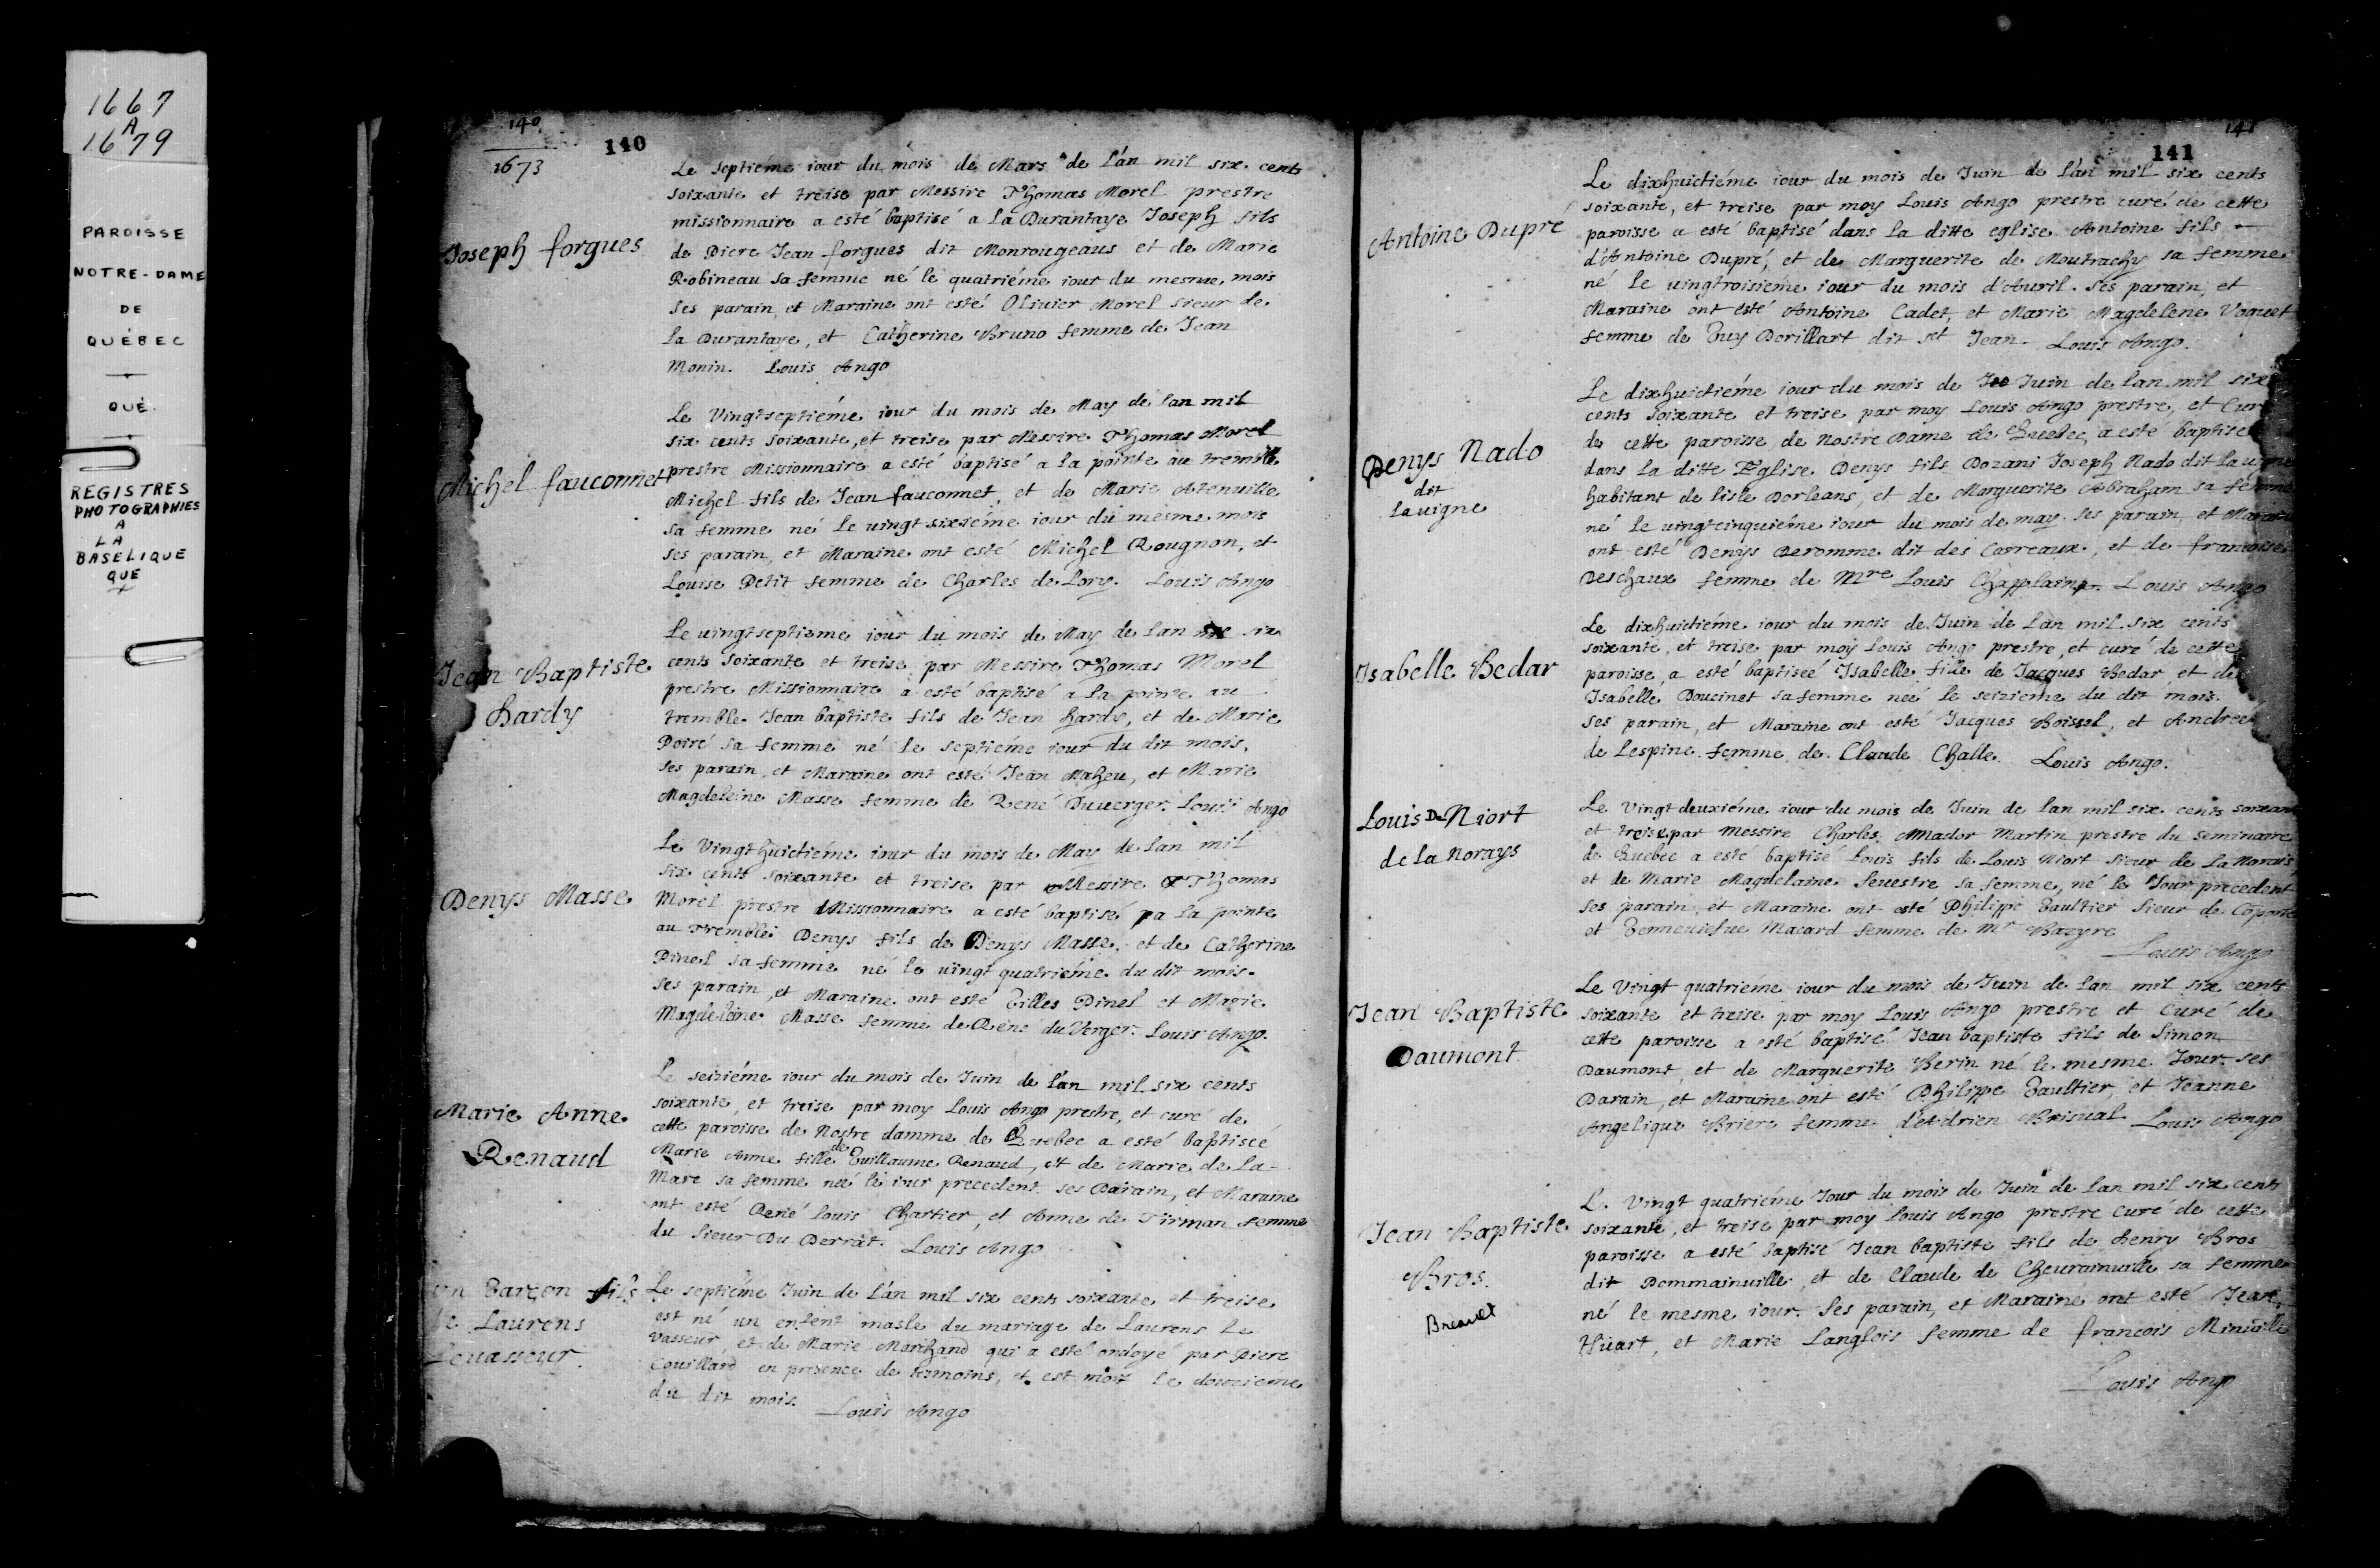 1667
A
1679
PAROISSE
NOTRE-DAME
DE
QUÉBEC
QUÉ.
REGISTRES
PHOTOGRAPHIES
A
LA
BASELIQUE
QUE
140
140
1673
Joseph forgues
Le septiéme iour du mois de Mars de l'an mil six cents
soixante et treise par Messire Thomas Morel prestre
missionnaire a esté baptisé a la Durantaye Joseph fils
de Piere Jean forgues dit Monrougeaus et de Marie
Robineau sa femme né le quatriéme iour du mesme mois
ses parain, et Maraine ont esté Olivier Morel sieur de
la Durantaye, et Catherine Bruno femme de Jean
Monin. Louis Ango
Michel fauconnet
Le Vingtseptiéme iour du mois de May de l'an mil
six cents soixante, et treise par Messire Thomas Morel
prestre Missionnaire a esté baptisé a la pointe au tremble
Michel fils de Jean fauconnet, et de Marie Atenuille
sa femme né le uingt sixiéme iour du mesme mois
ses parain, et Maraine ont esté Michel Rougnon, et
Louise Petit femme de Charles de Lory. Louis Ango
Jean Baptiste
hardy
Le uingtseptiéme iour du mois de May de l'an six
cents soixante et treise par Messire Thomas Morel
prestre Missionnaire a esté baptisé a la pointe au
tremble Jean baptiste fils de Jean hardy, et de Marie
Poiré sa femme né le septiéme iour du dit mois,
ses parain, et Maraine ont esté Jean Maheu, et Marie
Magdeleine Masse femme de René Duuerger. Louis Ango
Denys Masse
Le Vingthuictiéme iour du mois de May de l'an mil
six cents soixante et treise par Messire Thomas
Morel prestre Missionnaire a esté baptisé a la pointe
au Tremble Denys fils de Denys Masse, et de Catherine
Pinel sa femme né le uingt quatriéme du dit mois.
ses parain, et Maraine ont esté Gilles Pinel et Marie
Magdeleine Masse femme de René du Verger. Louis Ango.
Marie Anne
Renaud
Le seiziéme iour du mois de Juin de l'an mil six cents
soixante, et treise par moy Louis Ango prestre, et curé de
cette paroisse de Nostre damme de Quebec a esté baptiseé
Marie Anne fille de Guillaume Renaud, et de Marie de la
Mare sa femme neé le iour precedent. ses Parain, et Maraine
ont esté René Louis Chartier, et Anne de Tirman femme
du sieur Du Perrat. Louis Ango
un Garçon fils
de Laurens
Leuasseur.
Le septiéme Juin de l'an mil six cents soixante et treise
est né un enfent masle du mariage de Laurens le
Vasseur, et de Marie Marchand qui a esté ondoyé par Piere
Couillard en presence de temoins, et est mort le douziéme
du dit mois. Louis Ango
141
141
Antoine Dupré
Le dixhuictiéme iour du mois de Juin de l'an mil six cents
soixante, et treise par moy Louis Ango prestre curé de cette
paroisse a esté baptisé dans la ditte eglise Antoine fils
d'Antoine Dupré, et de Marguerite de Moutrachy sa femme
né le uingtroisieme iour du mois d'Auril. ses parain, et
Maraine ont esté Antoine Cadet, et Marie Magdelene Voguet
femme de Guy Derillart dit st Jean. Louis Ango.
Denys Nado
dit
lauigne
Le dixhuictiéme iour du mois de Juin de l'an mil six
cents soixante et treise par moy Louis Ango prestre, et Curé
de cette paroisse de Nostre Dame de Quebec a esté baptisé
dans la ditte Eglise Denys fils Dozani Joseph Nado dit lauigne
habitant de l'isle Dorleans, et de Marguerite Abraham sa femme
né le uingtcinquiéme iour du mois de may. ses parain, et Maraine
ont esté Denys Deromme dit des Carreaux, et de francoise
Deschaux femme de Mre Louis Chapplain. Louis Ango
Isabelle Bedar
Le dixhuictiéme iour du mois de Juin de l'an mil six cents
soixante, et treise par moy Louis Ango prestre, et curé de cette
paroisse, a esté baptiseé Isabelle fille de Jacques Bedar et de
Isabelle Doucinet sa femme neé le seizieme du dit mois.
ses parain, et Maraine ont esté Jacques Boissel, et Andreé
de Lespine femme de Claude Challe. Louis Ango.
Louis De Niort
de la Norays
Le Vingt deuxiéme iour du mois de Juin de l'an mil six cents soixante
et treise par Messire Charles Amador Martin prestre du seminaire
de Quebec a esté baptisé Louis fils de Louis Niort sieur de la Norais,
et de Marie Magdelaine Seuestre sa femme, né le Jour precedent
ses parain, et Maraine ont esté Philippe Gaultier sieur de Coporté
et Genneuiesue Macard femme de Mr Bazyre
Louis Ango
Jean Baptiste
Daumont
Le Vingt quatrieme iour du mois de Juin de l'an mil six cents
soixante et treise par moy Louis Ango prestre et Curé de
cette paroisse a esté baptisé Jean baptiste fils de Simon
Daumont, et de Marguerite Berin né le mesme Jour. ses
Parain, et Maraine ont esté Philippe Gaultier, et Jeanne
Angelique Briere femme d'Adrien Brisual Louis Ango
Jean Baptiste
Bros.
Breault
Le Vingt quatriéme Jour du mois de Juin de l'an mil six cents
soixante, et treise par moy Louis Ango prestre curé de cette
paroisse a esté baptisé Jean baptiste fils de henry Bros
dit Pommainuille, et de Claude de Cheurainuille sa femme
né le mesme iour. ses parain, et Maraine ont esté Jean
Huart, et Marie Langlois femme de francois Minuille
Louis Ango